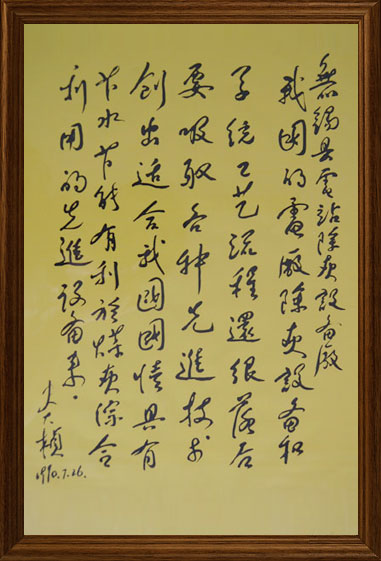 無錫县電站除灰設备廠
我國的電廠除灰設备和
系统工艺流程還很落后
要吸取各种先進技术
创出适合我國國情具有
节水节能有利於煤灰综合
利用的先進設备来.
史大楨
1990.7.26.